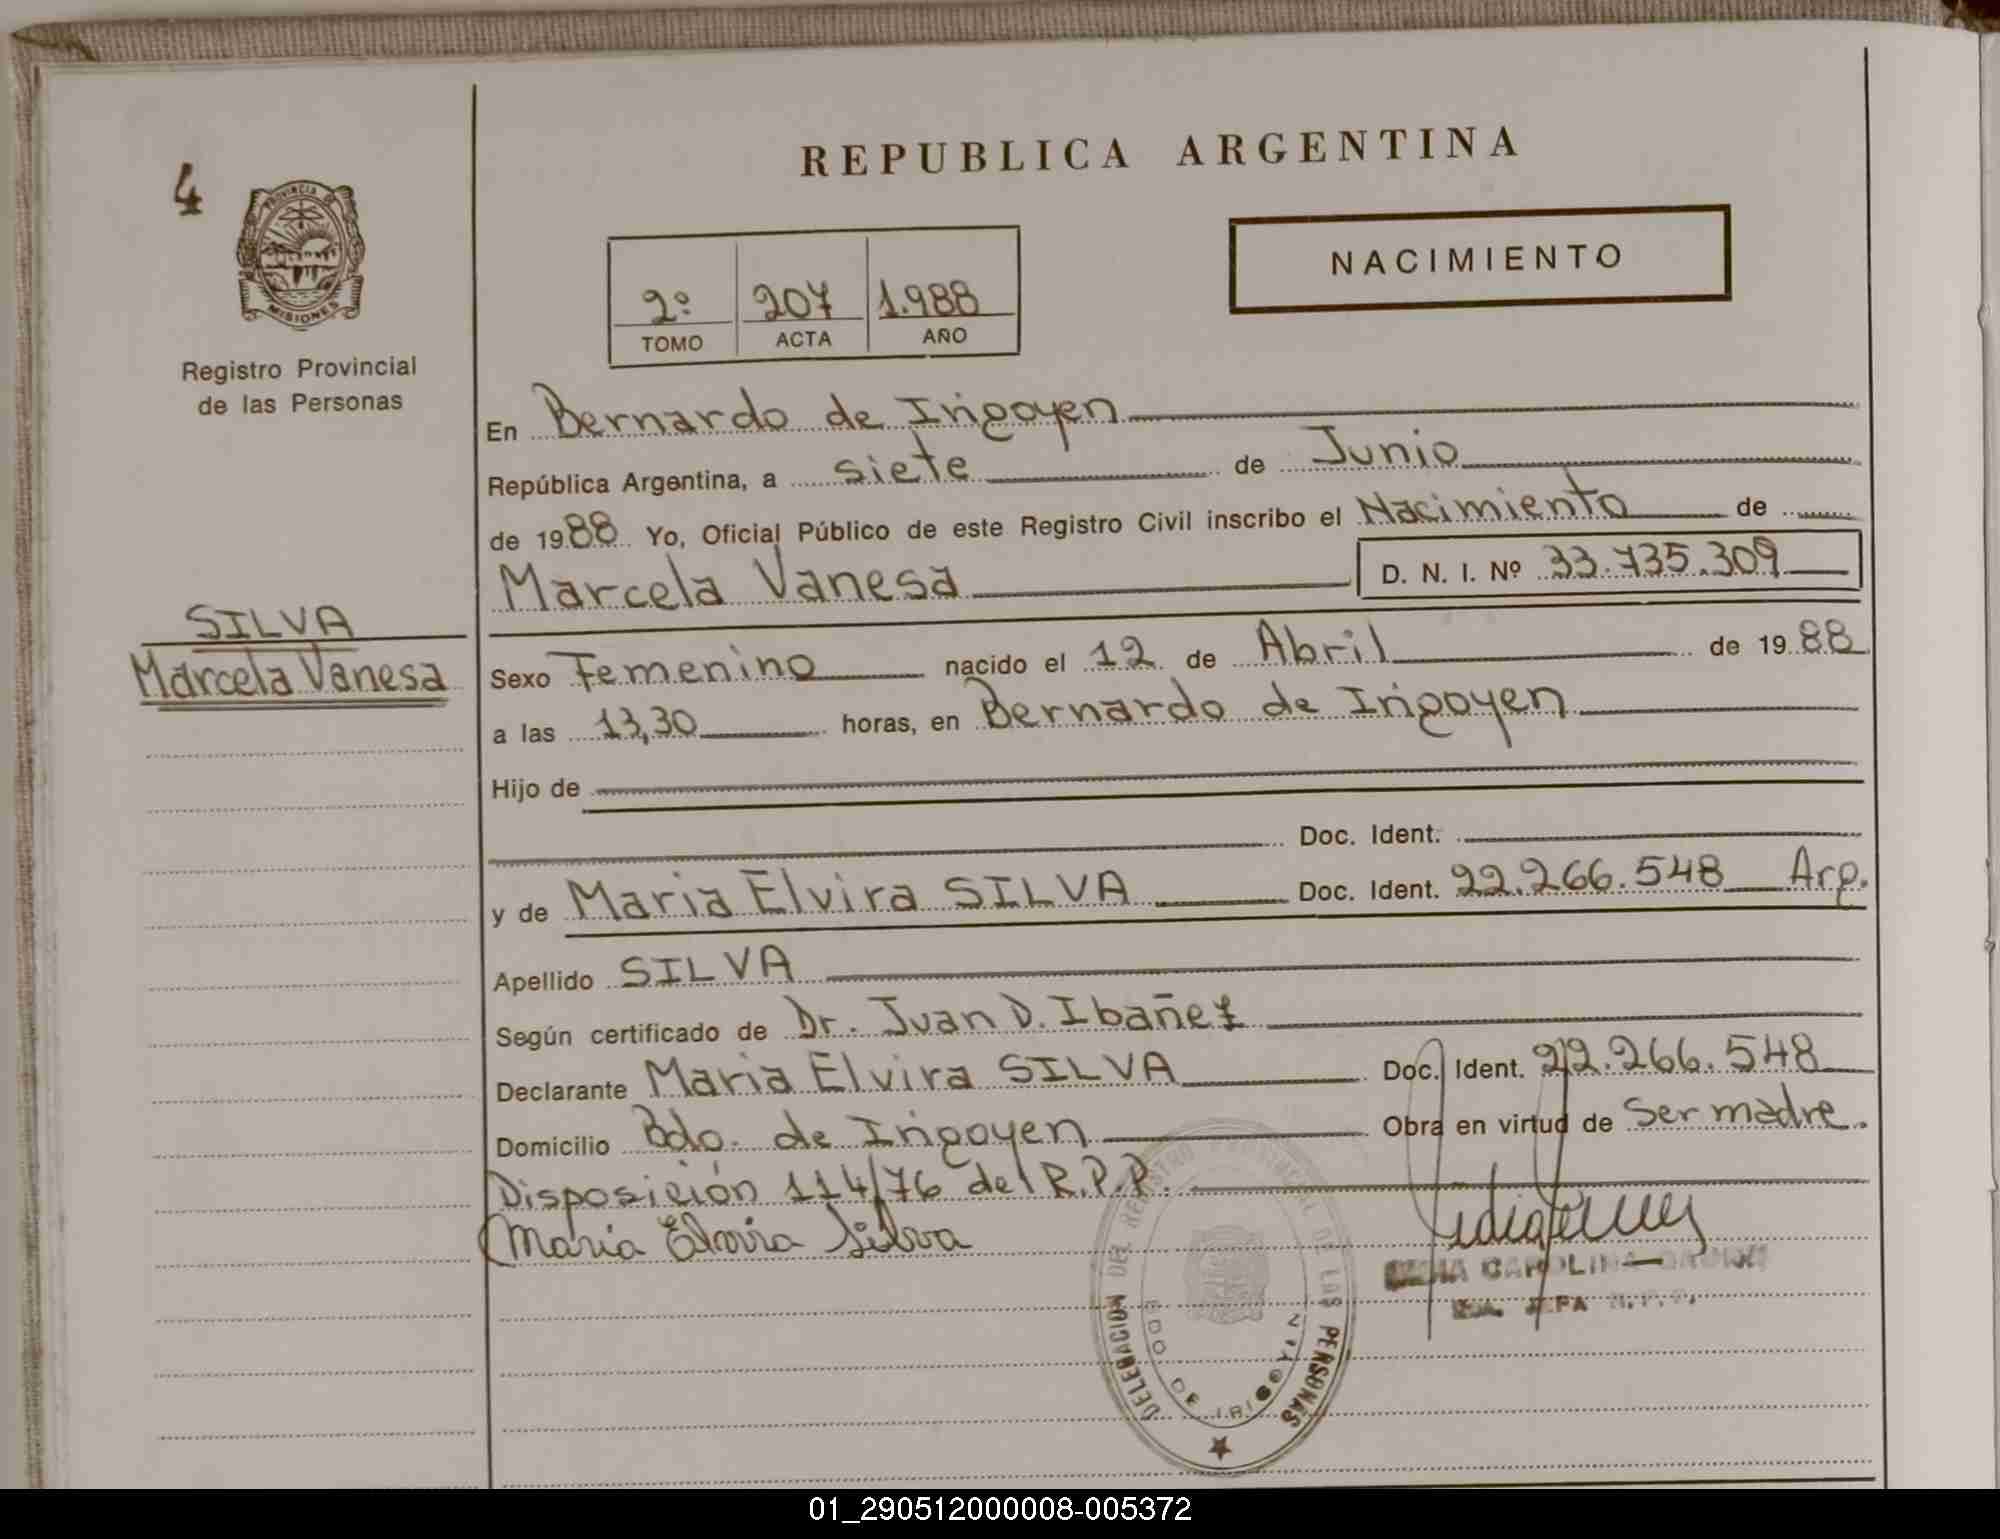 4
PROVINCIA DE
MISIONES
Registro Provincial
de las Personas
SILVA
Marcela Vanesa
REPUBLICA ARGENTINA
NACIMIENTO
2º 207 1.988
TOMO ACTA AÑO
En Bernardo de Irigoyen
República Argentina, a siete de Junio
de 1988 Yo, Oficial Público de este Registro Civil inscribo el Nacimiento de
Marcela Vanesa D. N. I. Nº 33.735.309
Sexo Femenino nacido el 12 de Abril de 1988
a las 13,30 horas, en Bernardo de Irigoyen
Hijo de
Doc. Ident.
y de Maria Elvira SILVA Doc. Ident. 22.266.548 Arg.
Apellido SILVA
Según certificado de Dr. Juan D. Ibañez
Declarante Maria Elvira SILVA Doc. Ident. 22.266.548
Domicilio Bdo. de Irigoyen Obra en virtud de Ser madre.
Disposición 114/76 del R.P.P.
Maria Elvira Silva
CAROLINA
JEFA R.P.P.
DELEGACION DEL REGISTRO PROVINCIAL DE LAS PERSONAS
BDO DE IRIGOYEN
01_290512000008-005372